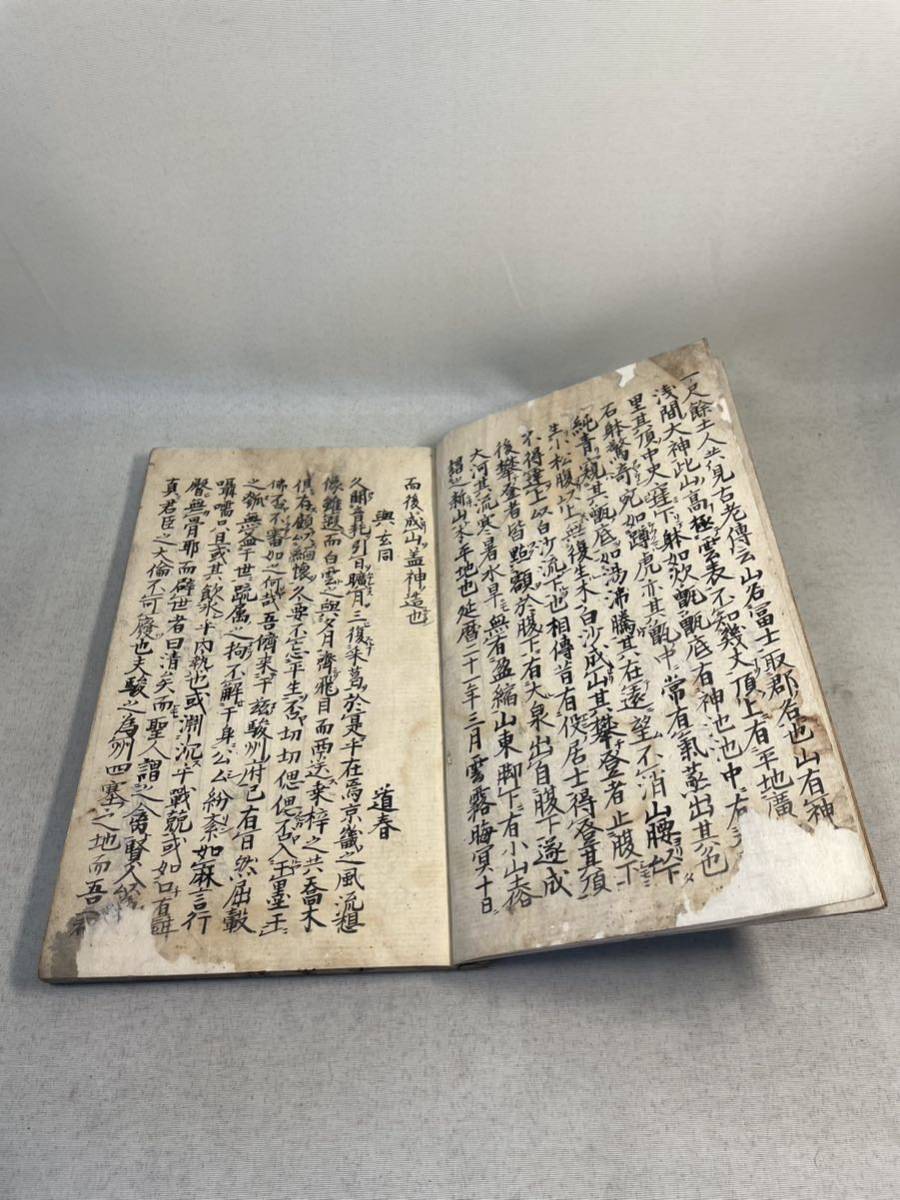 一尺餘土人共見古老傳云山名冨士取郡名也山有神
浅間大神此山高極雲表不知幾丈頂上有平地廣
里其頂中央窪下躰如炊甑甑底有神池池中有
石躰驚奇宛如蹲虎亦其甑中常有氣蒸出其色
純青窺其甑底如湯沸騰其在遠望不消山腰以下
生小松腹以上無復生木白沙成山其攀登者止腹下
不得達上以白沙流下也相傳昔有役居士得登其頂
後攀登者皆點額於腹下有大泉出自腹下遂成
大河其流寒暑水旱無有盈縮山東脚下有小山土俗
謂之新山本平地也延暦二十一年三月雲霧晦冥十日
而後成山盖神造也
與玄同
道春
久闊音耗引日曠月三復采葛於寔乎在焉京畿之風流想
像離遐而白雲之與夕月濟飛目而西送来梓之共喬木
俱有顧以緬懷久要不忘平生否切切偲偲否入玉墨玉
佛否不審如之何哉吾儕来于玆駿州府已有日然屈轂
之瓠無益于世疏属之拘不解于身公公紛紊如麻言行
囁嚅口且或其飲氷乎内執也或淵沉乎戰競或如口有
暦無骨耶而辟世者曰清矣而聖人謂之
真君臣之大倫不可廢也夫駿之為州四塞之地而吾